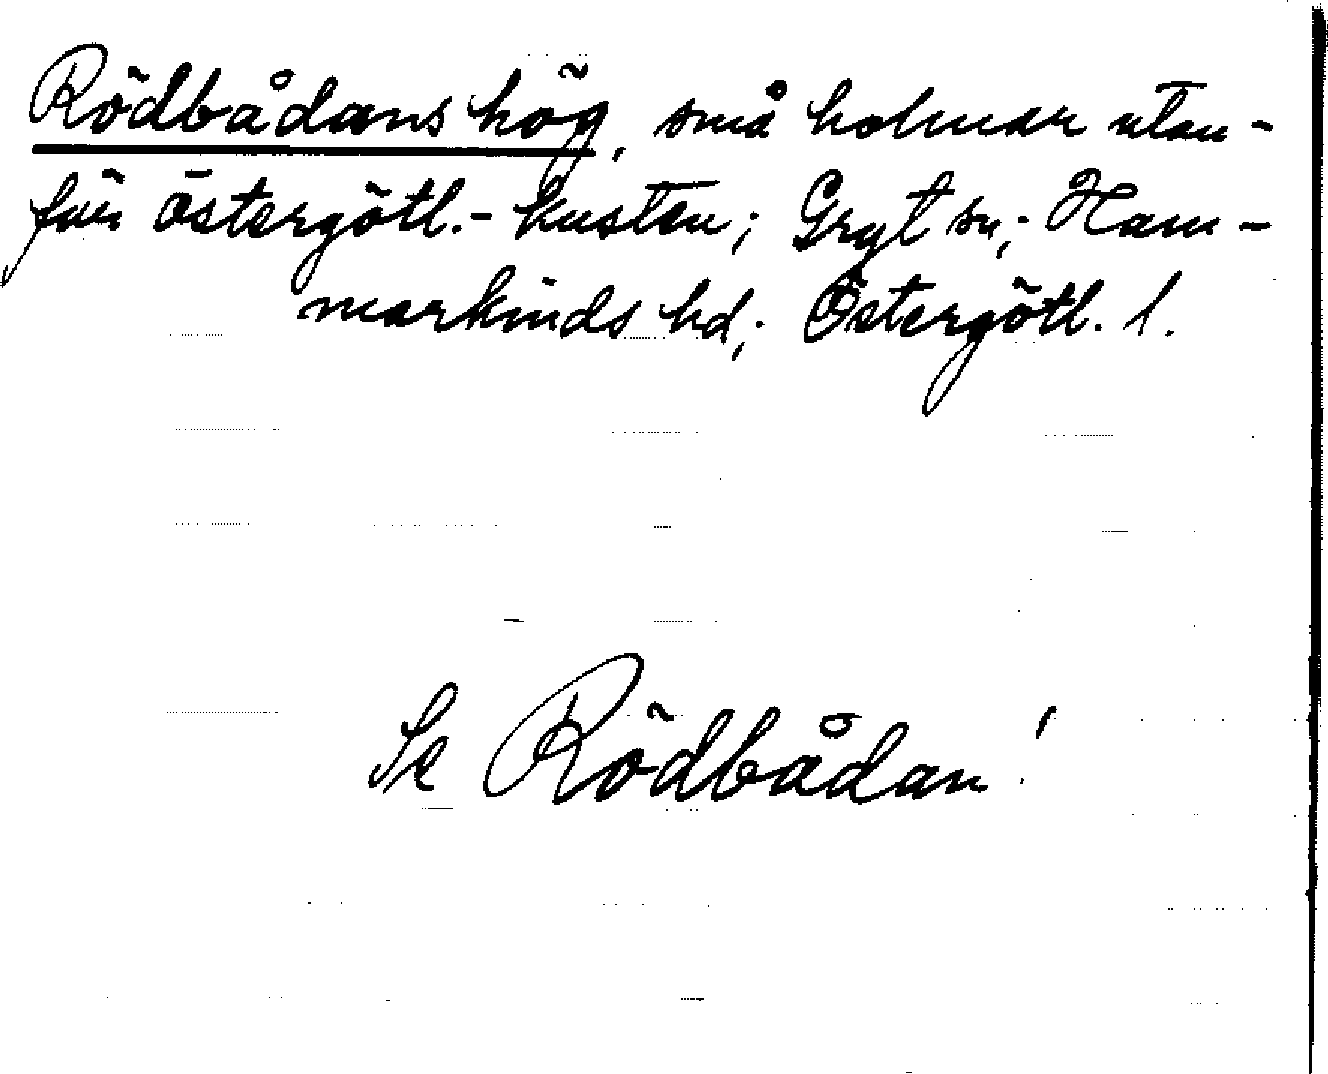 Rödbådans hög, små holmar utan-
för östergötl.- kusten; Gryt sn; Ham-
markinds hd; Östergötl. l.
Se Rödbådan!